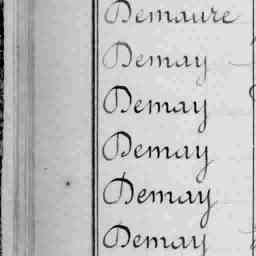 Demaure
Demay
Demay
Demay
Demay
Demay